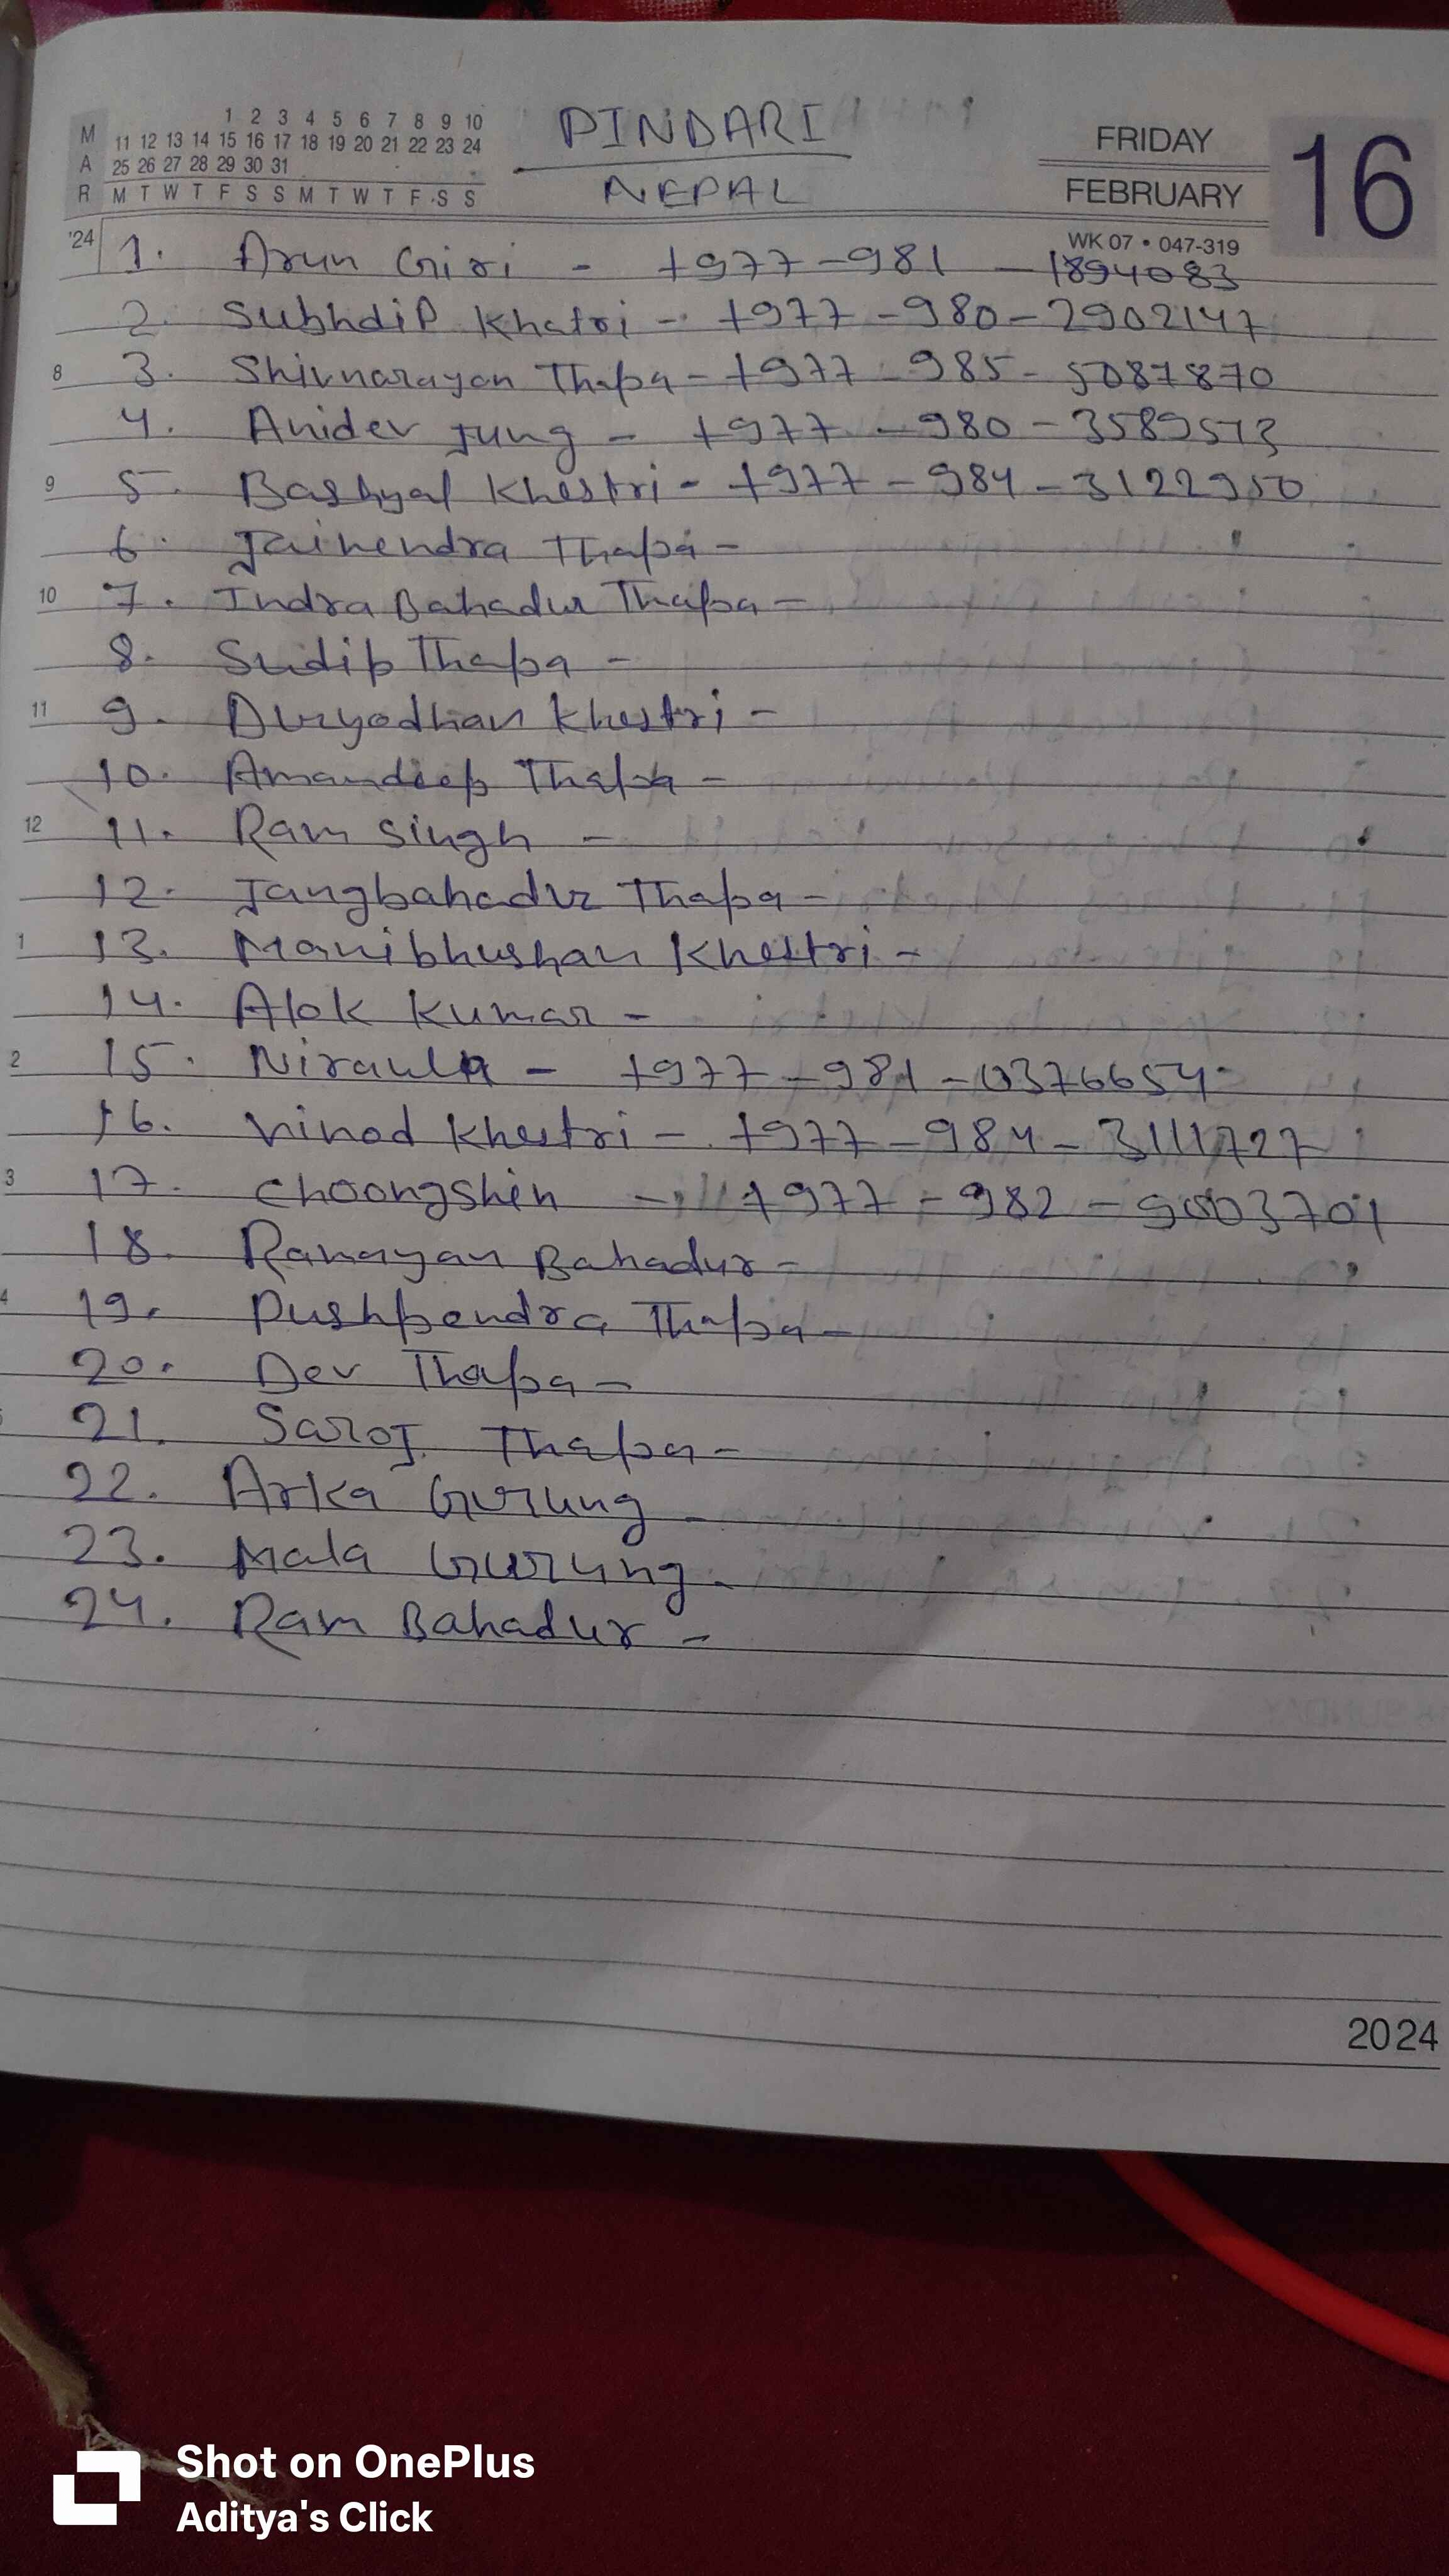 1 2 3 4 5 6 7 8 9 10
M 11 12 13 14 15 16 17 18 19 20 21 22 23 24
A 25 26 27 28 29 30 31
R M T W T F S S M T W T F S S
PINDARI
NEPAL
FRIDAY
FEBRUARY
16
WK 07 • 047-319
'24
1. Arun Giri - +977-981-1894083
2. Subhdip Khatri - +977-980-2902147
8 3. Shivnarayan Thapa - +977-985-5087870
4. Anidev Jung - +977-980-3589513
9 5. Bashyal Khestri - +977-984-3122950
6. Jainendra Thapa -
10 7. Indra Bahadur Thapa -
8. Sudip Thapa -
11 9. Duryodhan Khestri -
10. Amandeep Thapa -
12 11. Ram Singh -
12. Jangbahadur Thapa -
1 13. Manibhushan Khestri -
14. Alok Kumar -
2 15. Niraula - +977-981-0376654
16. Vinod Khestri - +977-984-3111727
3 17. Choongshin - +977-982-
18. Ramayan Bahadur -
4 19. Pushpendra Thapa -
20. Dev Thapa -
21. Saroj Thapa -
22. Arka Gurung -
23. Mala Gurung -
24. Ram Bahadur -
2024
Shot on OnePlus
Aditya's Click